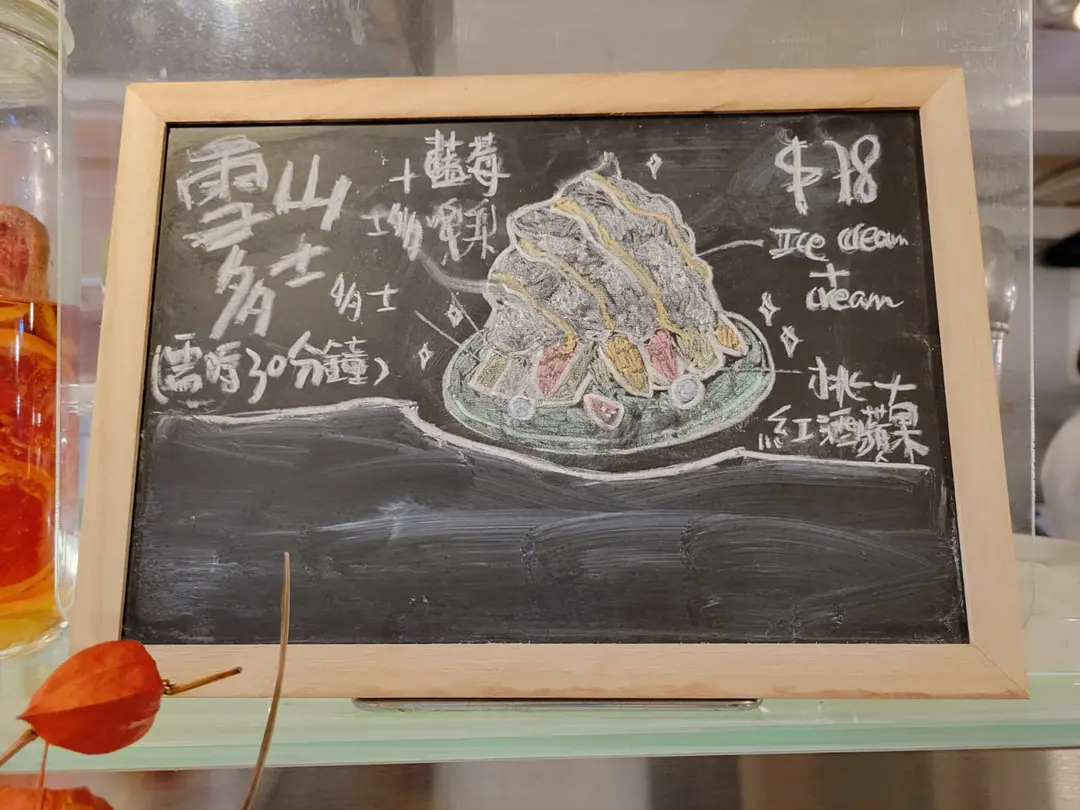 雪山
多士
(需時30分鐘)
+藍莓
士多啤梨
多士
$78
Ice cream
+
cream
桃+
紅酒蘋果